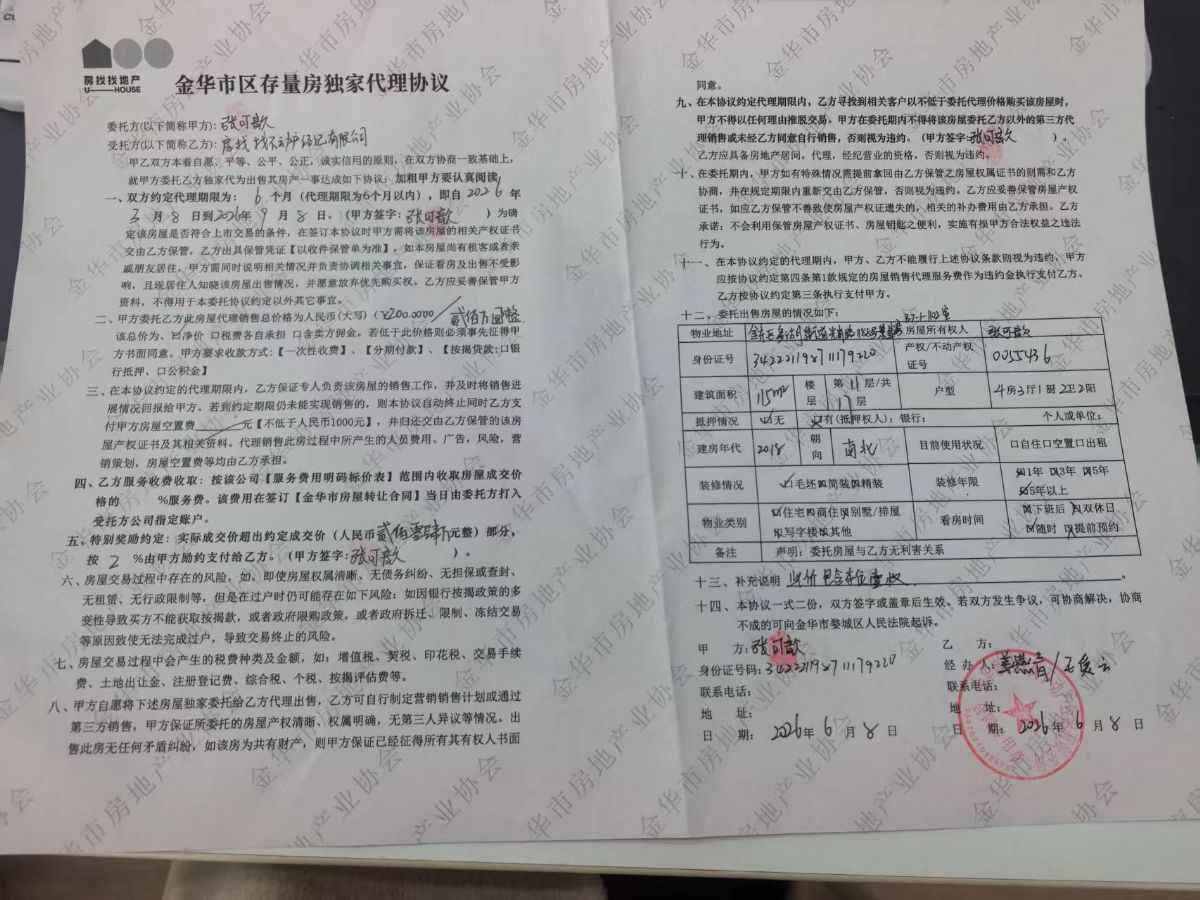 房找找地产
U——HOUSE
金华市区存量房独家代理协议
委托方(以下简称甲方): 张可歆
受托方(以下简称乙方): 房找找 有限公司
甲乙双方本着自愿、平等、公平、公正，诚实信用的原则，在双方协商一致基础上，
就甲方委托乙方独家代为出售其房产一事达成如下协议：加粗甲方要认真阅读
一、双方约定代理期限为： 6 个月（代理期限为6个月以内），即自 2026 年
3 月 8 日到 2026年 9 月 8 日。（甲方签字：张可歆 ）为确
定该房屋是否符合上市交易的条件，在签订本协议时甲方需将该房屋的相关产权证书
交由乙方保管，乙方出具保管凭证【以收件保管单为准】，如本房屋尚有租客或者亲
戚朋友居住，甲方需同时说明相关情况并负责协调相关事宜，保证看房及出售不受影
响，且现居住人知晓该房屋出售情况，并愿意放弃优先购买权。乙方应妥善保管甲方
资料，不得用于本委托协议约定以外其它事宜。
二、甲方委托乙方此房屋代理销售总价格为人民币(大写) (¥200.0000/ 贰佰万圆整
该总价为、口净价 口税费各自承担 口含卖方佣金。若低于此价格则必须事先征得甲
方书面同意。甲方要求收款方式：【一次性收费】、【分期付款】、【按揭贷款:口银
行抵押、口公积金】
三、在本协议约定的代理期限内，乙方保证专人负责该房屋的销售工作，并及时将销售进
展情况回报给甲方。若到约定期限仍未能实现销售的，则本协议自动终止同时乙方支
付甲方房屋空置费 元【不低于人民币1000元】，并归还交由乙方保管的该房
屋产权证书及其相关资料。代理销售此房过程中所产生的人员费用、广告，风险，营
销策划，房屋空置费等均由乙方承担。
四、乙方服务收费收取：按该公司【服务费用明码标价表】范围内收取房屋成交价
格的 %服务费。该费用在签订【金华市房屋转让合同】当日由委托方打入
受托方公司指定账户。
五、特别奖励约定：实际成交价超出约定成交价（人民币 贰佰零肆万 元整）部分，
按 2 %由甲方励约支付给乙方。（甲方签字：张可歆 ）。
六、房屋交易过程中存在的风险，如，即使房屋权属清晰、无债务纠纷、无担保或查封、
无租赁、无行政限制等，但是在过户时仍可能存在如下风险：如因银行按揭政策的多
变性导致买方不能获取按揭款，或者政府限购政策，或者政府拆迁、限制、冻结交易
等原因致使无法完成过户，导致交易终止的风险。
七、房屋交易过程中会产生的税费种类及金额，如：增值税、契税、印花税、交易手续
费、土地出让金、注册登记费、综合税、个税、按揭评估费等。
八、甲方自愿将下述房屋独家委托给乙方代理出售，乙方可自行制定营销销售计划或通过
第三方销售，甲方保证所委托的房屋产权清晰、权属明确，无第三人异议等情况。出
售此房无任何矛盾纠纷，如该房为共有财产，则甲方保证已经征得所有其有权人书面
同意。
九、在本协议约定代理期限内，乙方寻找到相关客户以不低于委托代理价格购买该房屋时，
甲方不得以任何理由推脱交易。甲方在委托期内不得将该房委托乙方以外的第三方代
理销售或未经乙方同意自行销售，否则视为违约。（甲方签字：张可歆 ）。
乙方应具备房地产居间，代理，经纪营业的资格，否则视为违约。
十、在委托期内，甲方如有特殊情况需提前拿回由乙方保管之房屋权属证书的则需和乙方
协商，并在规定期限内重新交由乙方保管，否则视为违约。乙方应妥善保管房屋产权
证书，如应乙方保管不善致使房屋产权证遗失的，相关的补办费用由乙方承担。乙方
承诺：不会利用保管房屋产权证书、房屋钥匙之便利，实施有损甲方合法权益之违法
行为。
十一、在本协议约定的代理期内，甲方、乙方不能履行上述协议条款则视为违约，甲方
应按协议约定第四条第1款规定的房屋销售代理服务费作为违约金执行支付乙方。
乙方按协议约定第三条执行支付甲方。
十二、委托出售房屋的情况如下：
物业地址 房屋所有权人 张可歆
身份证号 342221198711179220 产权/不动产权证号 0055436
建筑面积 115m² 楼层 第 11 层/共 17 层 户型 4房3厅1厨2卫2阳
抵押情况 ☑无 口有(抵押权人)：银行： 个人或单位:
建房年代 2018 朝向 南北 目前使用状况 口自住口空置口出租
装修情况 毛坯 简装 精装 装修年限 1年 3年 5年 5年以上
物业类别 住宅 商住 别墅/排屋 写字楼 其他 看房时间 下班后 双休日 随时 提前预约
备注 声明：委托房屋与乙方无利害关系
十三、补充说明 此价包含车位产权 。
十四、本协议一式二份，双方签字或盖章后生效。若双方发生争议，可协商解决，协商
不成的可向金华市婺城区人民法院起诉。
甲 方：张可歆
身份证号码：342221198711179220
联系电话：
地 址：
日 期： 2026年 6 月 8 日
乙 方：
经 办 人：
联系电话：
地 址：
日 期： 2026年 6 月 8 日
金华市房地产业协会